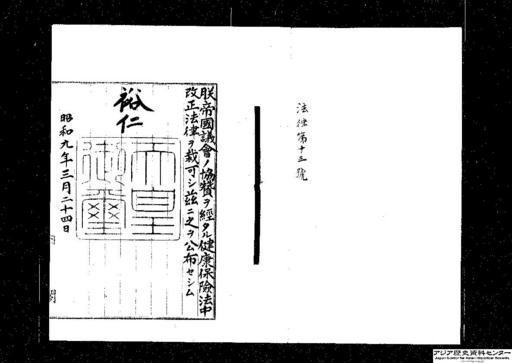 法律第十三號
朕帝國議會ノ協贊ヲ經タル健康保險法中
改正法律ヲ裁可シ茲ニ之ヲ公布セシム
裕仁
天皇御璽
昭和九年三月二十四日
アジア歴史資料センター
Japan Center for Asian Historical Records